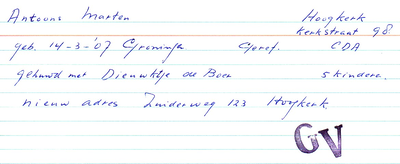 Antoons Marten Hoogkerk
Kerkstraat 98
geb. 14-3-'07 Groningen Geref. CDA
gehuwd met Dieuwktje de Boer 5 kinderen.
nieuw adres Zuiderweg 123 Hoogkerk
GV